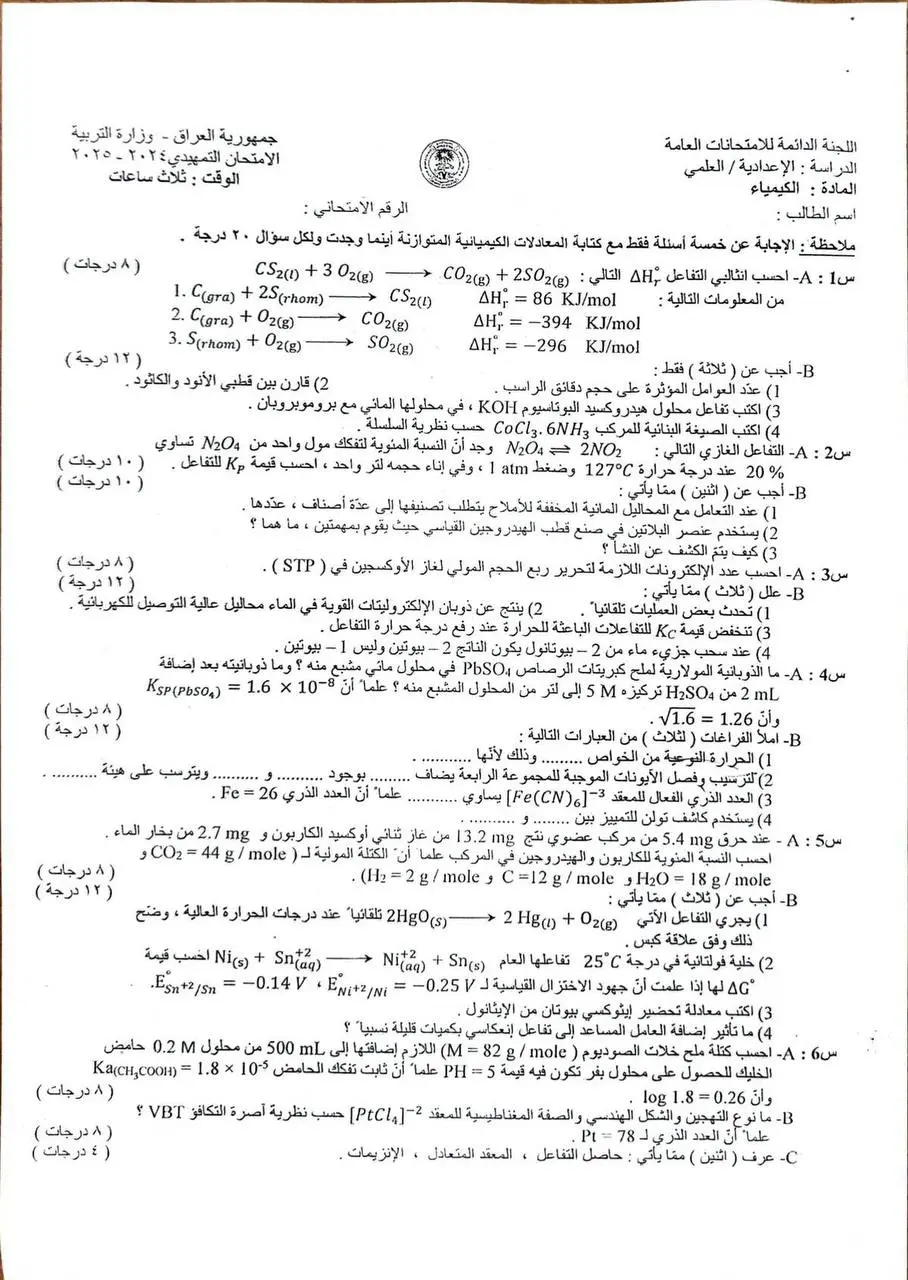 اللجنة الدائمة للامتحانات العامة
الدراسة : الإعدادية / العلمي
المادة : الكيمياء
اسم الطالب :
جمهورية العراق - وزارة التربية
الامتحان التمهيدي ٢٠٢٤ - ٢٠٢٥
الوقت : ثلاث ساعات
الرقم الامتحاني :
ملاحظة : الإجابة عن خمسة أسئلة فقط مع كتابة المعادلات الكيميائية المتوازنة أينما وجدت ولكل سؤال ٢٠ درجة .
س1 : A- احسب انثالبي التفاعل ΔH°r التالي : CS2(l) + 3 O2(g) ⟶ CO2(g) + 2SO2(g) ( ٨ درجات )
من المعلومات التالية : 1. C(gra) + 2S(rhom) ⟶ CS2(l) ΔH°r = 86 KJ/mol
2. C(gra) + O2(g) ⟶ CO2(g) ΔH°r = −394 KJ/mol
3. S(rhom) + O2(g) ⟶ SO2(g) ΔH°r = −296 KJ/mol
B- أجب عن ( ثلاثة ) فقط : ( ١٢ درجة )
1) عدّد العوامل المؤثرة على حجم دقائق الراسب . 2) قارن بين قطبي الأنود والكاثود .
3) اكتب تفاعل محلول هيدروكسيد البوتاسيوم KOH ، في محلولها المائي مع بروموبروبان .
4) اكتب الصيغة البنائية للمركب CoCl3.6NH3 حسب نظرية السلسلة .
س2 : A- التفاعل الغازي التالي : N2O4 ⇌ 2NO2 وجد أنّ النسبة المئوية لتفكك مول واحد من N2O4 تساوي
20 % عند درجة حرارة 127°C وضغط 1 atm ، وفي إناء حجمه لتر واحد ، احسب قيمة KP للتفاعل . ( ١٠ درجات )
B- أجب عن ( اثنين ) ممّا يأتي : ( ١٠ درجات )
1) عند التعامل مع المحاليل المائية المخففة للأملاح يتطلب تصنيفها إلى عدّة أصناف ، عدّدها .
2) يستخدم عنصر البلاتين في صنع قطب الهيدروجين القياسي حيث يقوم بمهمتين ، ما هما ؟
3) كيف يتمّ الكشف عن النشأ ؟
س3 : A- احسب عدد الإلكترونات اللازمة لتحرير ربع الحجم المولي لغاز الأوكسجين في ( STP ) . ( ٨ درجات )
B- علل ( ثلاث ) ممّا يأتي : ( ١٢ درجة )
1) تحدث بعض العمليات تلقائياً . 2) ينتج عن ذوبان الإلكتروليتات القوية في الماء محاليل عالية التوصيل للكهربائية .
3) تنخفض قيمة KC للتفاعلات الباعثة للحرارة عند رفع درجة حرارة التفاعل .
4) عند سحب جزيء ماء من 2 – بيوتانول يكون الناتج 2 – بيوتين وليس 1 – بيوتين .
س4 : A- ما الذوبانية المولارية لملح كبريتات الرصاص PbSO4 في محلول مائي مشبع منه ؟ وما ذوبانيته بعد إضافة
2 mL من H2SO4 تركيزه 5 M إلى لتر من المحلول المشبع منه ؟ علماً أنّ KSP(PbSO4) = 1.6 × 10−8
وأنّ √1.6 = 1.26 . ( ٨ درجات )
B- املأ الفراغات ( لثلاث ) من العبارات التالية : ( ١٢ درجة )
1) الحرارة النوعية من الخواص ......... وذلك لأنّها ...........
2) لترسيب وفصل الأيونات الموجبة للمجموعة الرابعة يضاف ......... بوجود .......... و .......... ويترسب على هيئة ..........
3) العدد الذري الفعال للمعقد [Fe(CN)6]−3 يساوي .......... علماً أنّ العدد الذري Fe = 26 .
4) يستخدم كاشف تولن للتمييز بين ......... و ..........
س5 : A - عند حرق 5.4 mg من مركب عضوي نتج 13.2 mg من غاز ثنائي أوكسيد الكاربون و 2.7 mg من بخار الماء .
احسب النسبة المئوية للكاربون والهيدروجين في المركب علماً أنّ الكتلة المولية لـ ( CO2 = 44 g / mole و
H2O = 18 g / mole و C =12 g / mole و H2 = 2 g / mole) . ( ٨ درجات )
B- أجب عن ( ثلاث ) ممّا يأتي : ( ١٢ درجة )
1) يجري التفاعل الآتي 2HgO(s) ⟶ 2 Hg(l) + O2(g) تلقائياً عند درجات الحرارة العالية ، وضّح
ذلك وفق علاقة كبس .
2) خلية فولتائية في درجة 25°C تفاعلها العام Ni(s) + Sn+2(aq) ⟶ Ni+2(aq) + Sn(s) احسب قيمة
ΔG° لها إذا علمت أنّ جهود الاختزال القياسية لـ E°Ni+2/Ni = −0.25 V ، E°Sn+2/Sn = −0.14 V.
3) اكتب معادلة تحضير إيثوكسي بيوتان من الإيثانول .
4) ما تأثير إضافة العامل المساعد إلى تفاعل إنعكاسي بكميات قليلة نسبياً ؟
س6 : A- احسب كتلة ملح خلات الصوديوم ( M = 82 g / mole) اللازم إضافتها إلى 500 mL من محلول 0.2 M حامض
الخليك للحصول على محلول بفر تكون فيه قيمة PH = 5 علماً أنّ ثابت تفكك الحامض Ka(CH3COOH) = 1.8 × 10-5
وأنّ log 1.8 = 0.26 . ( ٨ درجات )
B- ما نوع التهجين والشكل الهندسي والصفة المغناطيسية للمعقد [PtCl4]−2 حسب نظرية آصرة التكافؤ VBT ؟
علماً أنّ العدد الذري لـ Pt = 78 . ( ٨ درجات )
C- عرف ( اثنين ) ممّا يأتي : حاصل التفاعل ، المعقد المتعادل ، الإنزيمات . ( ٤ درجات )